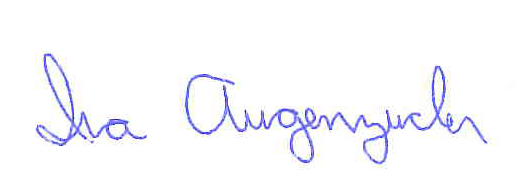 Iva Augenzucker